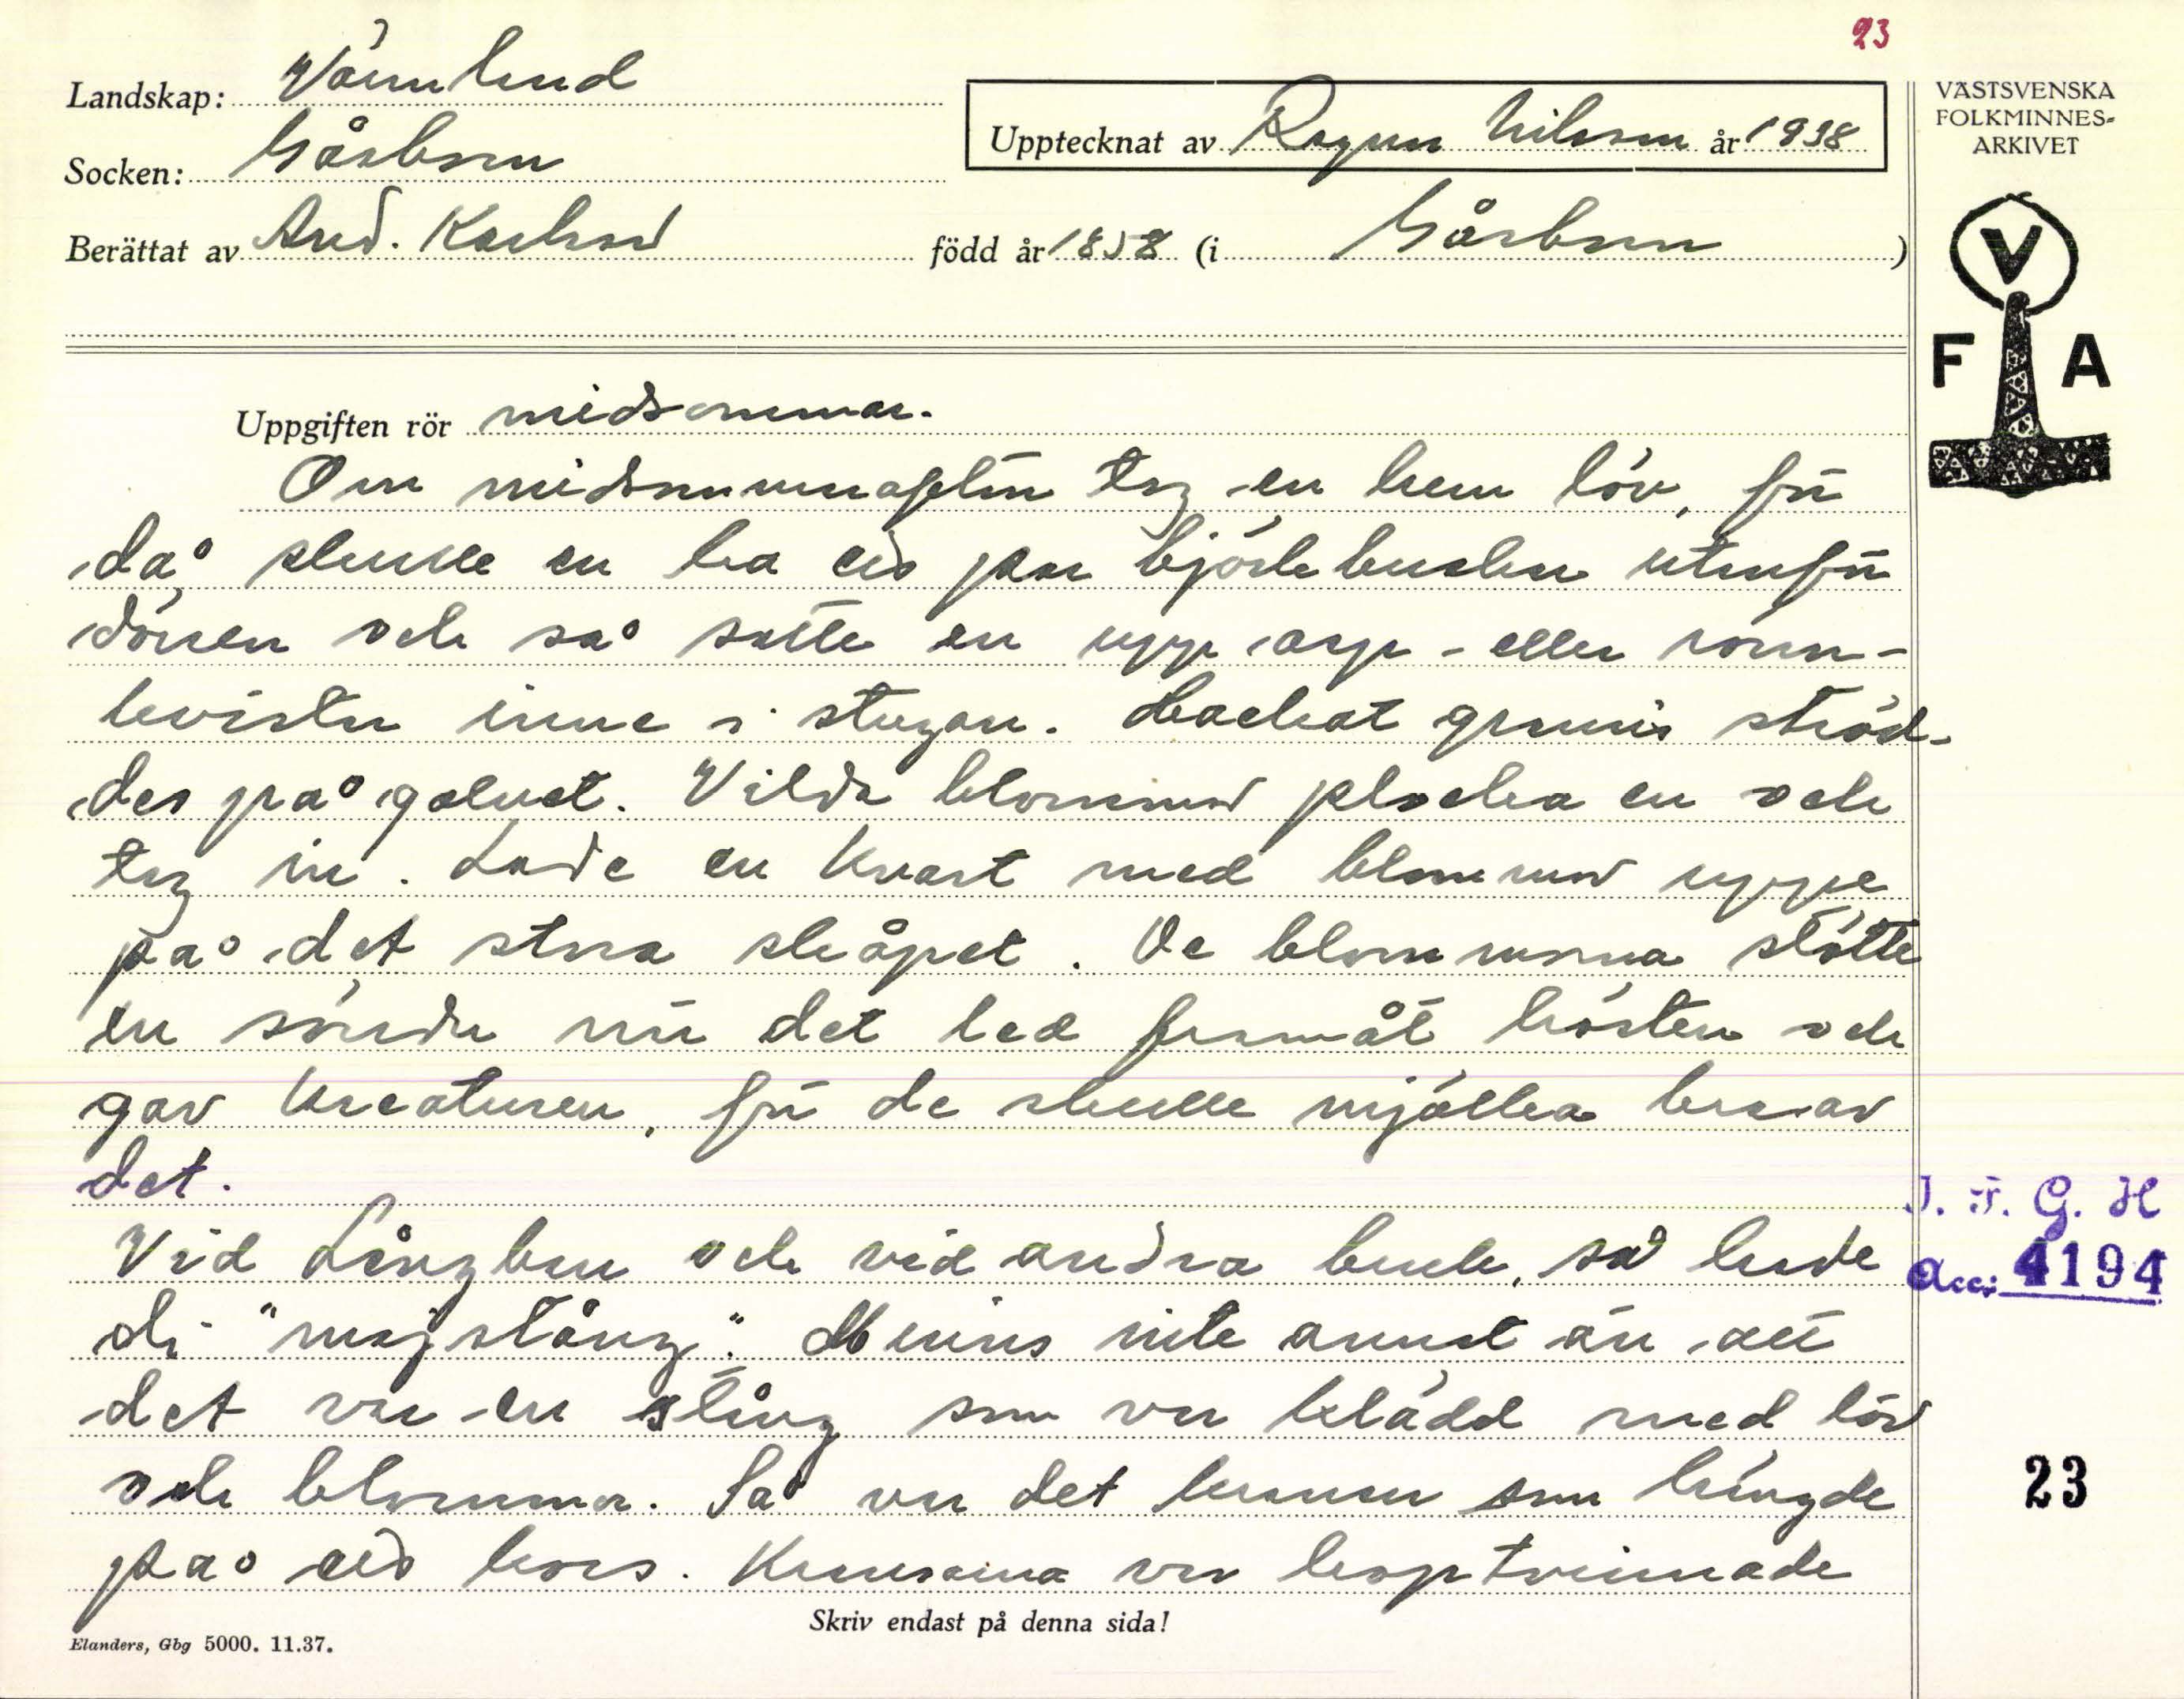 23
Landskap: Värmland
Socken: Gåsborn
Upptecknat av Ragnar Nilsson år 1938
Berättat av And. Karlsson född år 1858 (i Gåsborn)
VÄSTSVENSKA
FOLKMINNES-
ARKIVET
V
F A
Uppgiften rör midsommar.
Om midsommarafton tog en hem löv, för
då skulle en ha ett par björkbuskar utanför
dörren och så satte en upp asp- eller rönn-
kvistar inne i stugan. Hackat granris ströd-
des på golvet. Vilda blommor plocka en och
tog in. Lade en kvast med blommor uppe
på det stora skåpet. De blommorna stötte
en sönder när det led framåt hösten och
gav kreaturen, för de skulle mjölka bra av
det.
Vid Långban och vid andra bruk, så hade
di "majstång". Minns inte annat än att
det var en stång som var klädd med löv
och blommor. Så var det kransar som hängde
på ett kors. Kransarna var hoptvinnade
J. F. G. H
Acc: 4194
23
Skriv endast på denna sida!
Elanders, Gbg 5000. 11.37.